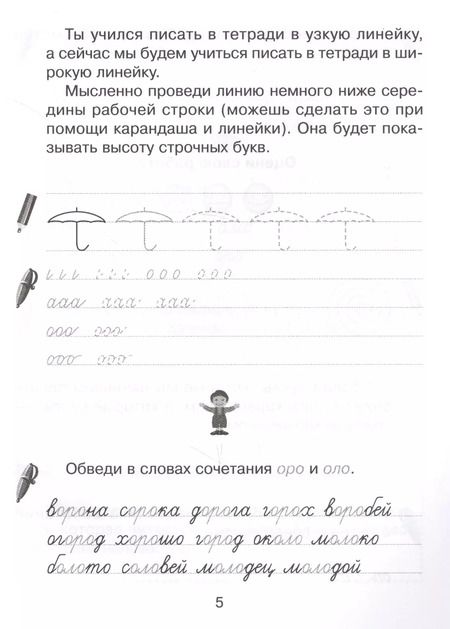 Ты учился писать в тетради в узкую линейку,
а сейчас мы будем учиться писать в тетради в ши-
рокую линейку.
Мысленно проведи линию немного ниже сере-
дины рабочей строки (можешь сделать это при
помощи карандаша и линейки). Она будет пока-
зывать высоту строчных букв.
ιιι ιιι ооо ооо
ааа ааа ааа
ооо ооо
ооо ооо
Обведи в словах сочетания оро и оло.
ворона сорока дорога горох воробей
огород хорошо город около молоко
болото соловей молодец молодой
5